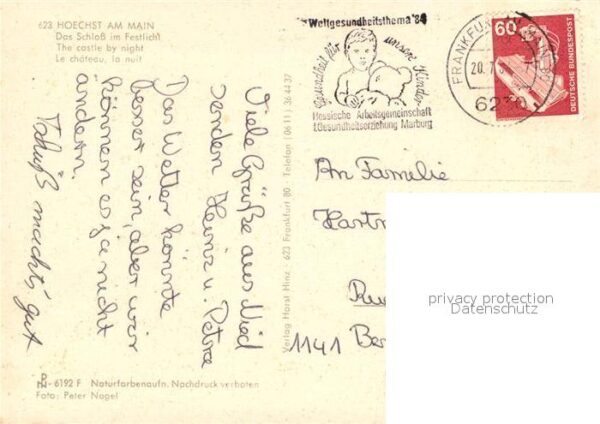 623 HOECHST AM MAIN
Das Schloß im Festlicht
The castle by night
Le château, la nuit
Viele Grüße aus Nied
senden Heinz u. Petra
Das Wetter könnte
besser sein, aber wir
können es ja nicht
ändern.
macht's gut
PH - 6192 F Naturfarbenaufn. Nachdruck verboten
Foto: Peter Nagel
Verlag Horst Hinz · 623 Frankfurt 80 · Telefon (06 11) 36 44 37
Weltgesundheitsthema '84
Gesundheit für unsere Kinder
Hessische Arbeitsgemeinschaft
f.Gesundheitserziehung Marburg
FRANKFURT
20.7.
6230
60
DEUTSCHE BUNDESPOST
An Familie
Hartm
1141 Ber
privacy protection
Datenschutz